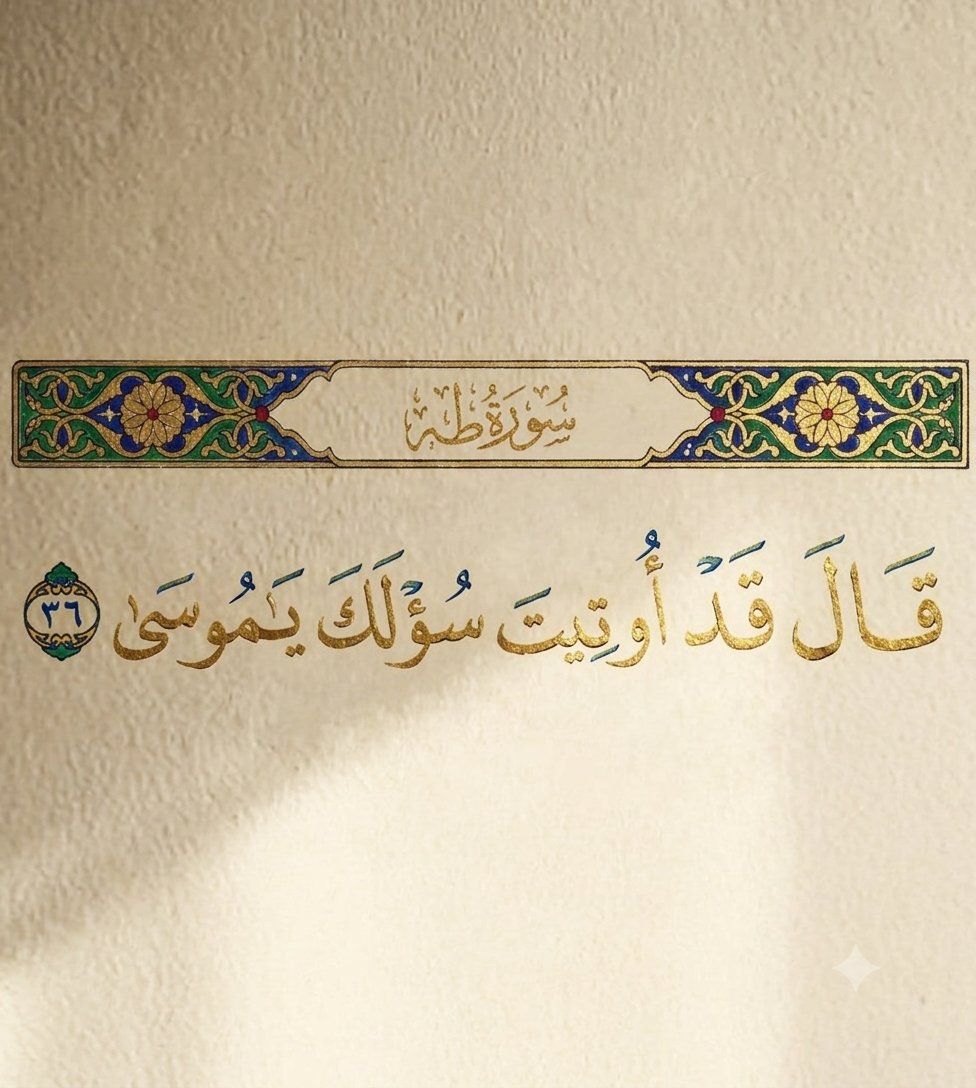 سُورَةُ طه
قَالَ قَدْ أُوتِيتَ سُؤْلَكَ يَٰمُوسَىٰ ٣٦